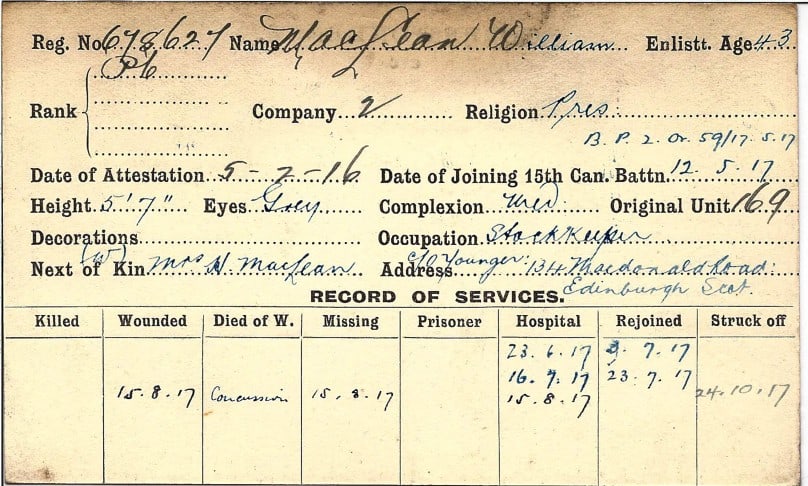 Reg. No 678627 Name MacLean William Enlistt. Age 43
Pte
Rank Company 2 Religion Pres
B. P. 2. Or 59/17.5.17
Date of Attestation 5-2-16 Date of Joining 15th Can. Battn. 12.5.17
Height 5'7" Eyes Grey Complexion Med Original Unit 169
Decorations Occupation Stock Keeper
Next of (W) Kin Mrs MacLean Address C/O Younger: 134 Macdonald Road:
Edinburgh Scot.
RECORD OF SERVICES.
Killed Wounded Died of W. Missing Prisoner Hospital Rejoined Struck off
23.6.17 7.17
16.7.17 23.7.17
15.8.17 Concussion 15.8.17 15.8.17 24.10.17